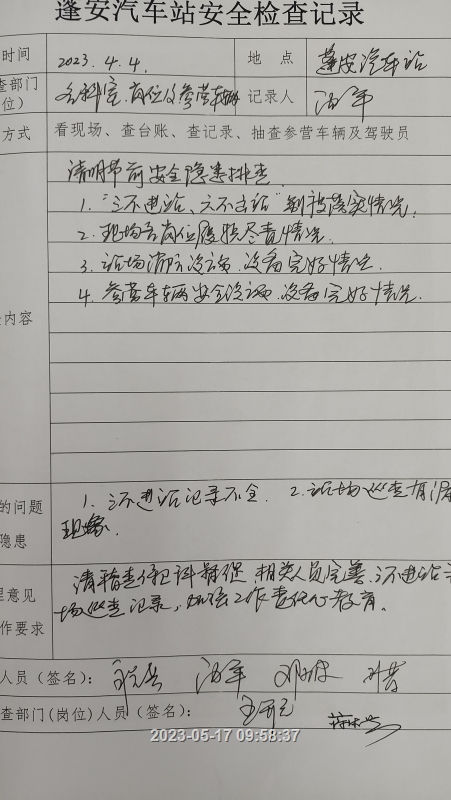 蓬安汽车站安全检查记录
时间 2023.4.4. 地 点 蓬安汽车站
查部门 各科室、岗位及参营车辆 记录人
位)
方式 看现场、查台账、查记录、抽查参营车辆及驾驶员
清明节前安全隐患排查
1. "三不进站、六不出站"制度落实情况.
2. 现场各岗位履职尽责情况.
3. 站场消防设施、设备完好情况
4. 参营车辆安全设施、设备完好情况.
内容
1. 三不进站记录不全. 2. 站场巡查有
的问题
现象.
隐患
请稽查保卫科督促相关人员完善三不进站
理意见
场巡查记录, 加强工作责任心教育.
作要求
人员(签名):
查部门(岗位)人员(签名):
2023-05-17 09:58:37